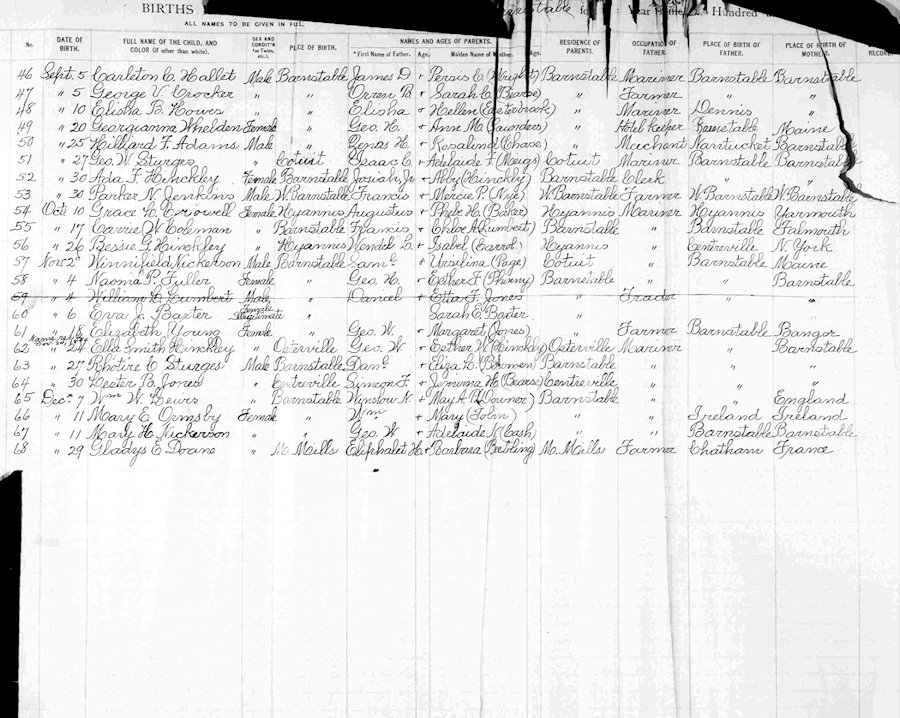 BIRTHS Barnstable for Year Hundred
ALL NAMES TO BE GIVEN IN FULL.
No. DATE OF BIRTH. FULL NAME OF THE CHILD, AND COLOR (if other than white). SEX AND CONDIT'N PLCE OF BIRTH. NAMES AND AGES OF PARENTS. * First Name of Father. Age. Maiden Name of Mother. Age. RESIDENCE OF PARENTS. OCCUPATION OF FATHER. PLACE OF BIRTH OF FATHER. PLACE OF BIRTH OF MOTHER. RECORD
46 Sept. 5 Carleton C. Hallet Male Barnstable James D + Persis C (Wright) Barnstable Mariner Barnstable Barnstable
47 " 5 George V. Crocker " " Orren B. + Sarah C (Bearse) " Farmer " "
48 " 10 Elisha B. Howes " " Elisha + Hellen (Easterbrook) " Mariner Dennis "
49 " 20 Georgianna Whelden Female " Geo. H. + Ann M. (Saunders) " Hotel Keeper Barnstable Maine
50 " 25 Hilliard F. Adams Male " Zenas H. + Rosalind (Chase) " Merchant Nantucket Barnstable
51 " 27 Geo. W. Sturges " Cotuit Isaac C. + Adelaide F. (Meigs) Cotuit Mariner Barnstable Barnstable
52 " 30 Ada F. Hinckley Female Barnstable Josiah, Jr + Abby (Hinckly) Barnstable Clerk " "
53 " 30 Parker N. Jenkins Male W. Barnstable Francis + Mercie P. (Nye) W. Barnstable Farmer W. Barnstable W. Barnstable
54 Oct. 10 Grace L. Crowell Female Hyannis Augustus + Phebe H. (Baker) Hyannis Mariner Hyannis Yarmouth
55 " 17 Carrie W. Coleman " Barnstable Francis + Chloe A. (Lumbert) Barnstable " Barnstable Falmouth
56 " 26 Bessie G. Hinckley " Hyannis Wendal L. + Isabel (Carrol) Hyannis " Centreville N. York
57 Nov. 2 Winnifield Nickerson Male Barnstable Saml. + Ursulina (Page) Cotuit " Barnstable Maine
58 " 4 Naomi P. Fuller Female " Geo. H. + Esther F. (Phinny) Barnstable " " Barnstable
59 " 4 William D. Lumbert Male " Daniel + Etta F. Jones " Trader " "
60 " 6 Eva J. Baxter Female Illegitimate " Sarah E. Baxter " "
61 " 18 Elizabeth Young Female " Geo. W. + Margaret (Jones) " Farmer Barnstable Bangor
62 " 24 Ella Smith Hinckley " Osterville Geo. W + Esther W. (Hinckley) Osterville Mariner " Barnstable
63 " 27 Rhotire C. Sturges Male Barnstable Danl. + Eliza L. (Bowmen) Barnstable " " "
64 " 30 Lester B. Jones " Centreville Simeon F. + Jemima H. (Bearse) Centreville " " "
65 Dec. 7 Wm. W. Lewis " Barnstable Winslow N. + May A. P. (Downer) Barnstable " " England
66 " 11 Mary E. Ormsby Female " Wm + Mary (John) " " Ireland Ireland
67 " 11 Mary H. Nickerson " " Geo. W + Adelaide N. (Cash) " " Barnstable Barnstable
68 " 29 Gladys E. Doane " M. Mills Eliphalet H. + Barbara (Beibling) M. Mills Farmer Chatham France